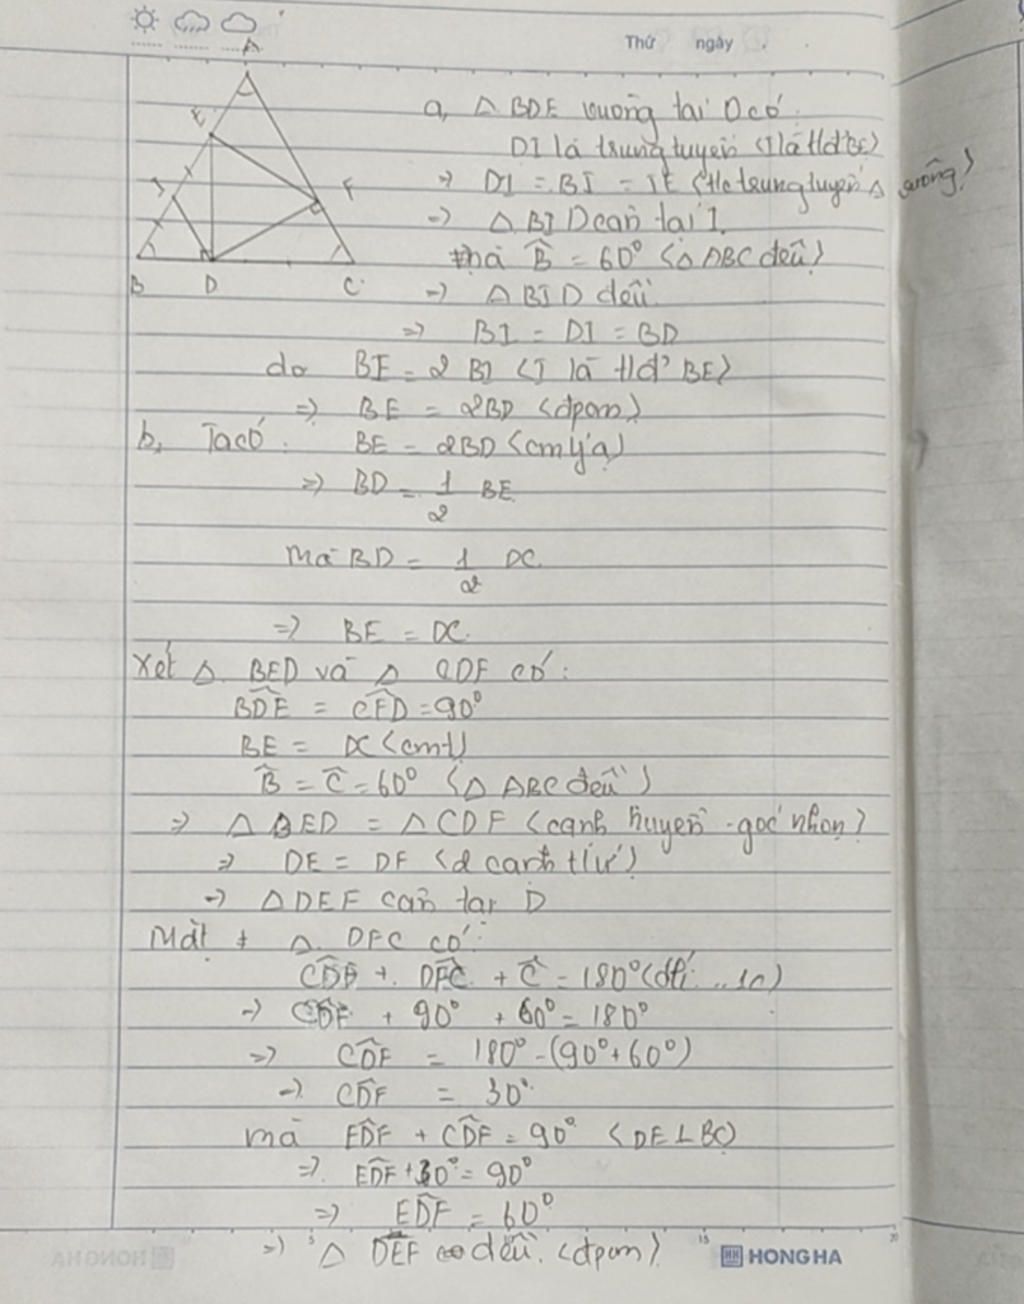 Thứ ngày
A
E
I
F
B D C
a, △ BDE vuông tại D có:
DI là trung tuyến (I là tđ BE)
=> DI = BI = IE (t/c trung tuyến △ vuông)
=> △ BID cân tại I.
mà B̂ = 60° (△ ABC đều)
=> △ BID đều
=> BI = DI = BD
do BE = 2 BI (I là tđ BE)
=> BE = 2BD (đpcm)
b, Ta có: BE = 2BD (cm ý a)
=> BD = 1/2 BE
mà BD = 1/2 DC
=> BE = DC
Xét △ BED và △ CDF có:
BDE = CFD = 90°
BE = DC (cmt)
B̂ = Ĉ = 60° (△ ABC đều)
=> △ BED = △ CDF (cạnh huyền - góc nhọn)
=> DE = DF (2 cạnh t/ứ)
=> △ DEF cân tại D
Mặt ≠ △ DFC có:
CDF + DFC + Ĉ = 180°
=> CDF + 90° + 60° = 180°
=> CDF = 180° - (90° + 60°)
=> CDF = 30°
mà EDF + CDF = 90° (DE ⊥ BC)
=> EDF + 30° = 90°
=> EDF = 60°
=> △ DEF đều. (đpcm)
HONG HA